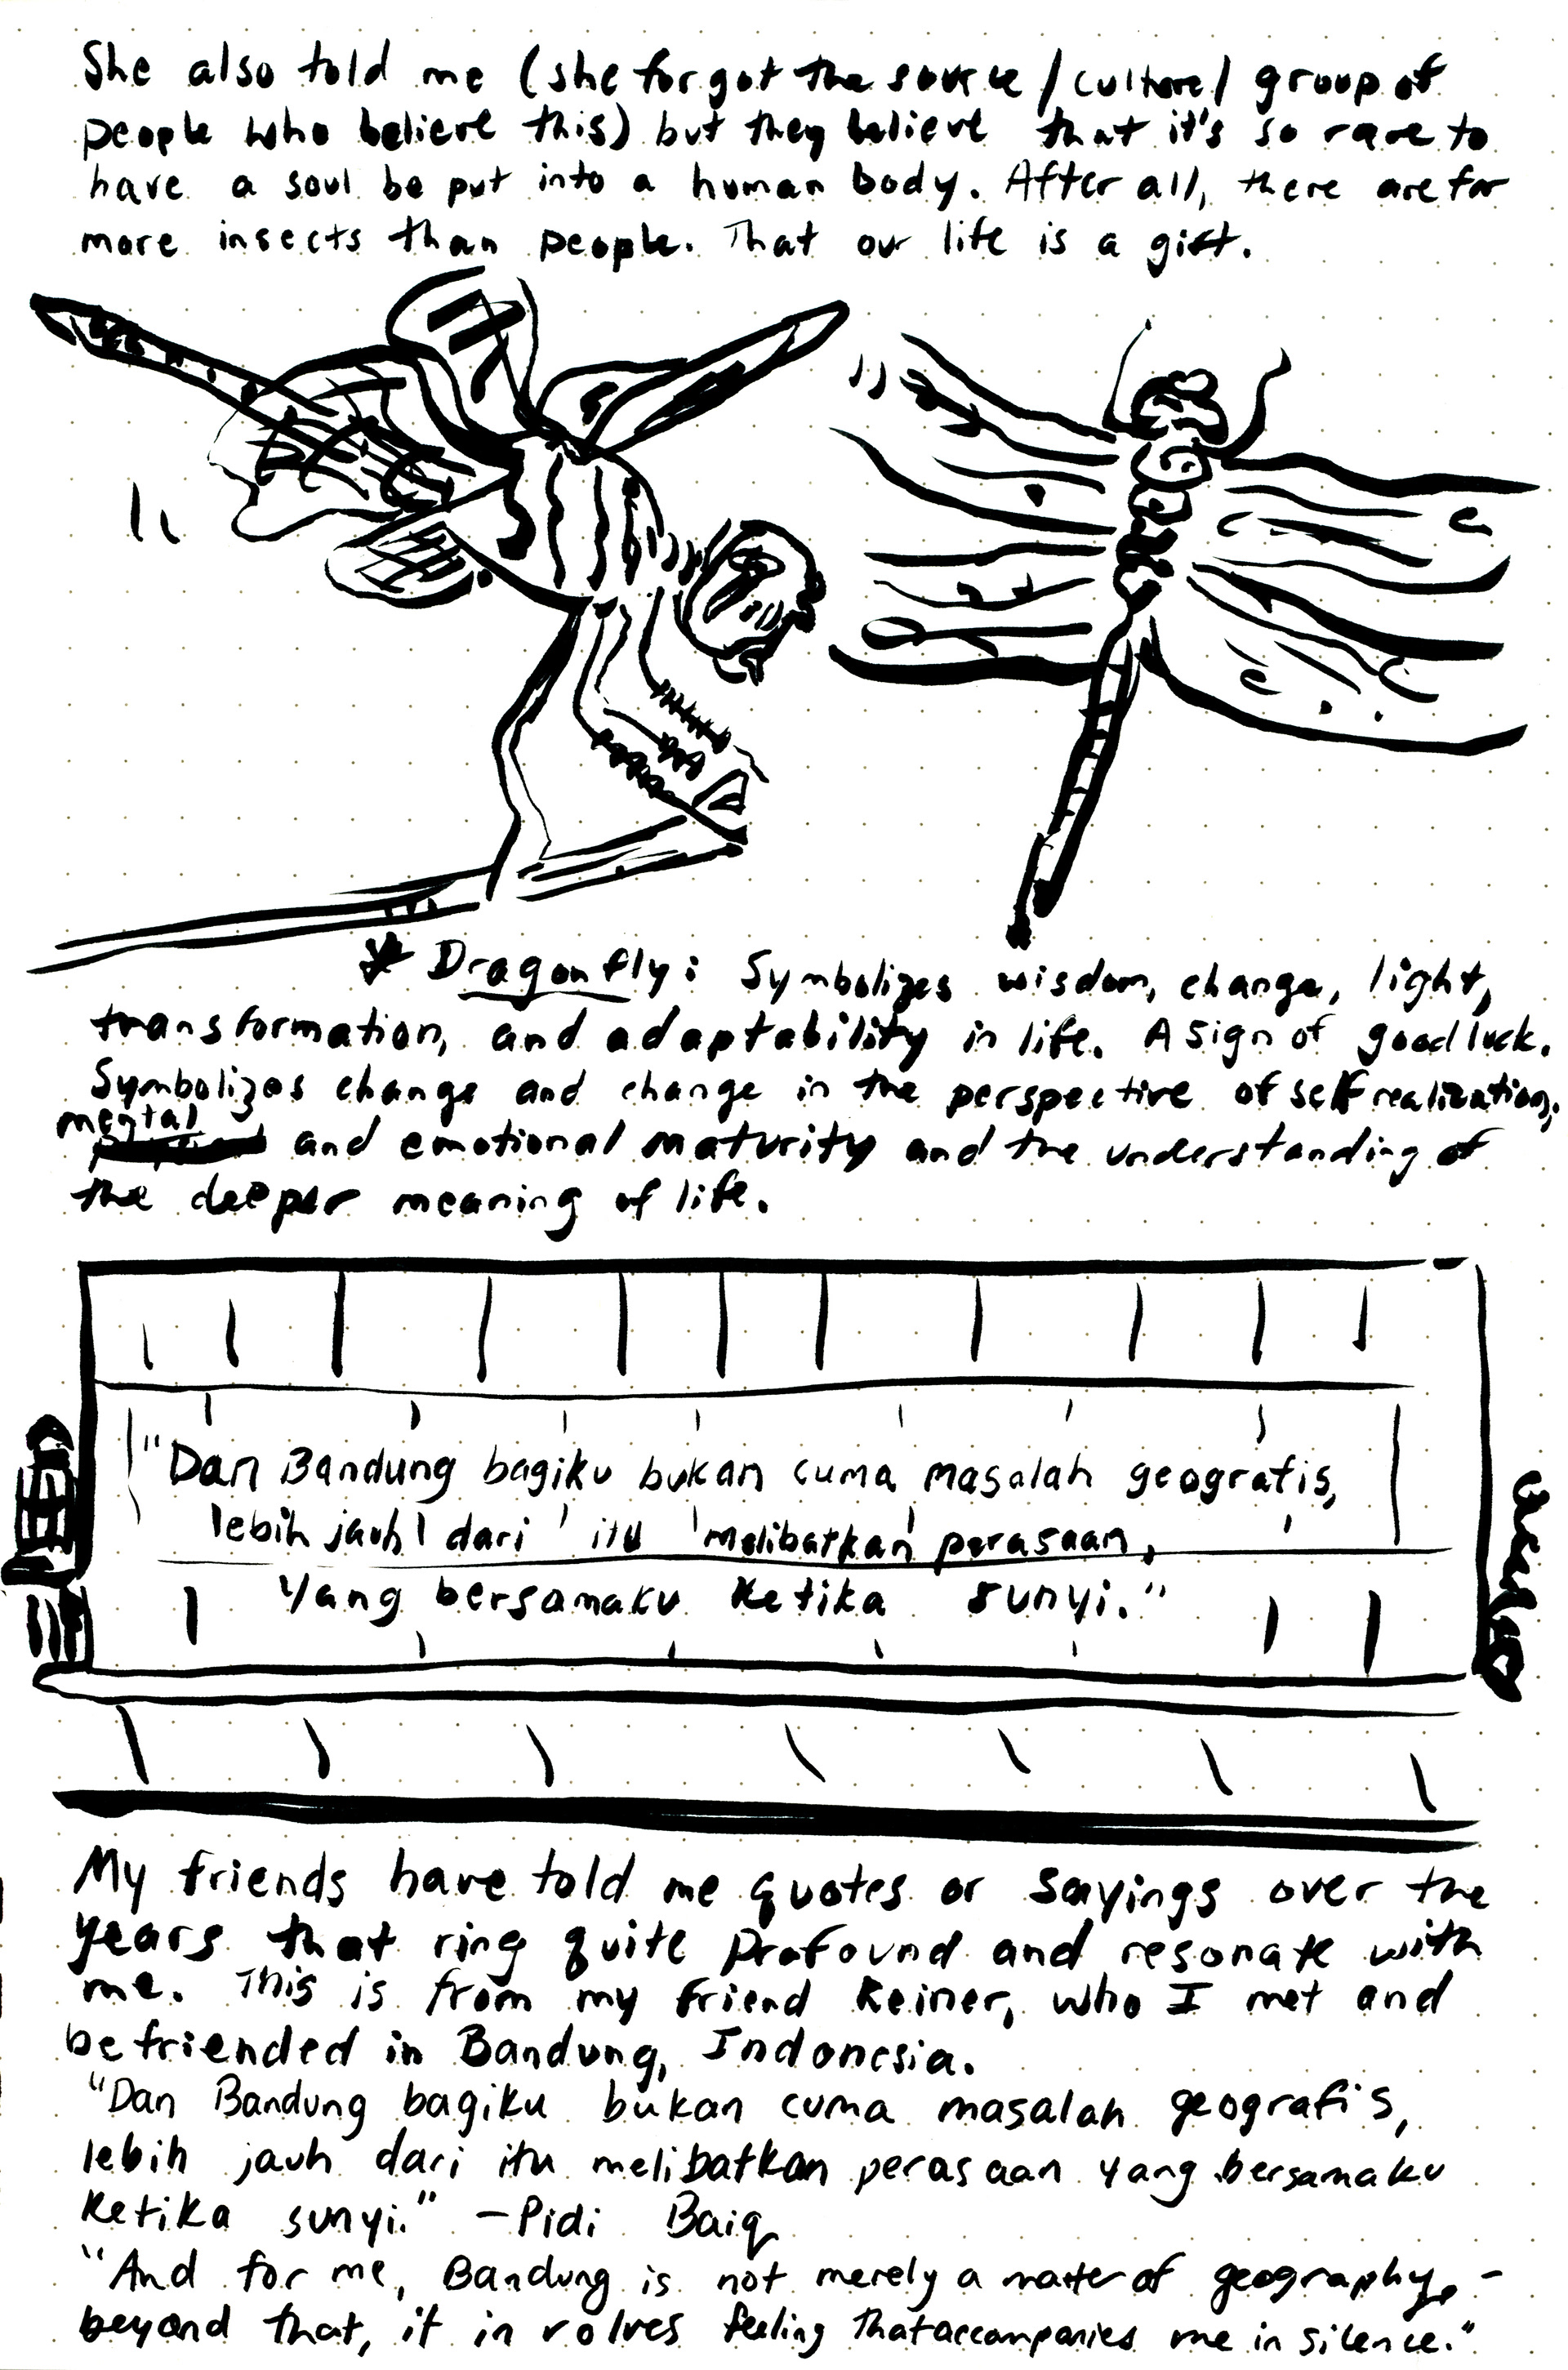 She also told me (she forgot the source/culture/group of
people who believe this) but they believe that it's so rare to
have a soul be put into a human body. After all, there are far
more insects than people. That our life is a gift.
* Dragonfly: Symbolizes wisdom, change, light,
transformation, and adaptability in life. A sign of good luck.
Symbolizes change and change in the perspective of self realization,
mental
and emotional maturity and the understanding of
the deeper meaning of life.
"Dan Bandung bagiku bukan cuma masalah geografis,
lebih jauh dari itu melibatkan perasaan,
yang bersamaku ketika sunyi."
My friends have told me quotes or sayings over the
years that ring quite profound and resonate with
me. This is from my friend Reiner, who I met and
befriended in Bandung, Indonesia.
"Dan Bandung bagiku bukan cuma masalah geografis,
lebih jauh dari itu melibatkan perasaan yang bersamaku
ketika sunyi." - Pidi Baiq
"And for me, Bandung is not merely a matter of geography, -
beyond that, it involves feeling that accompanies me in silence."